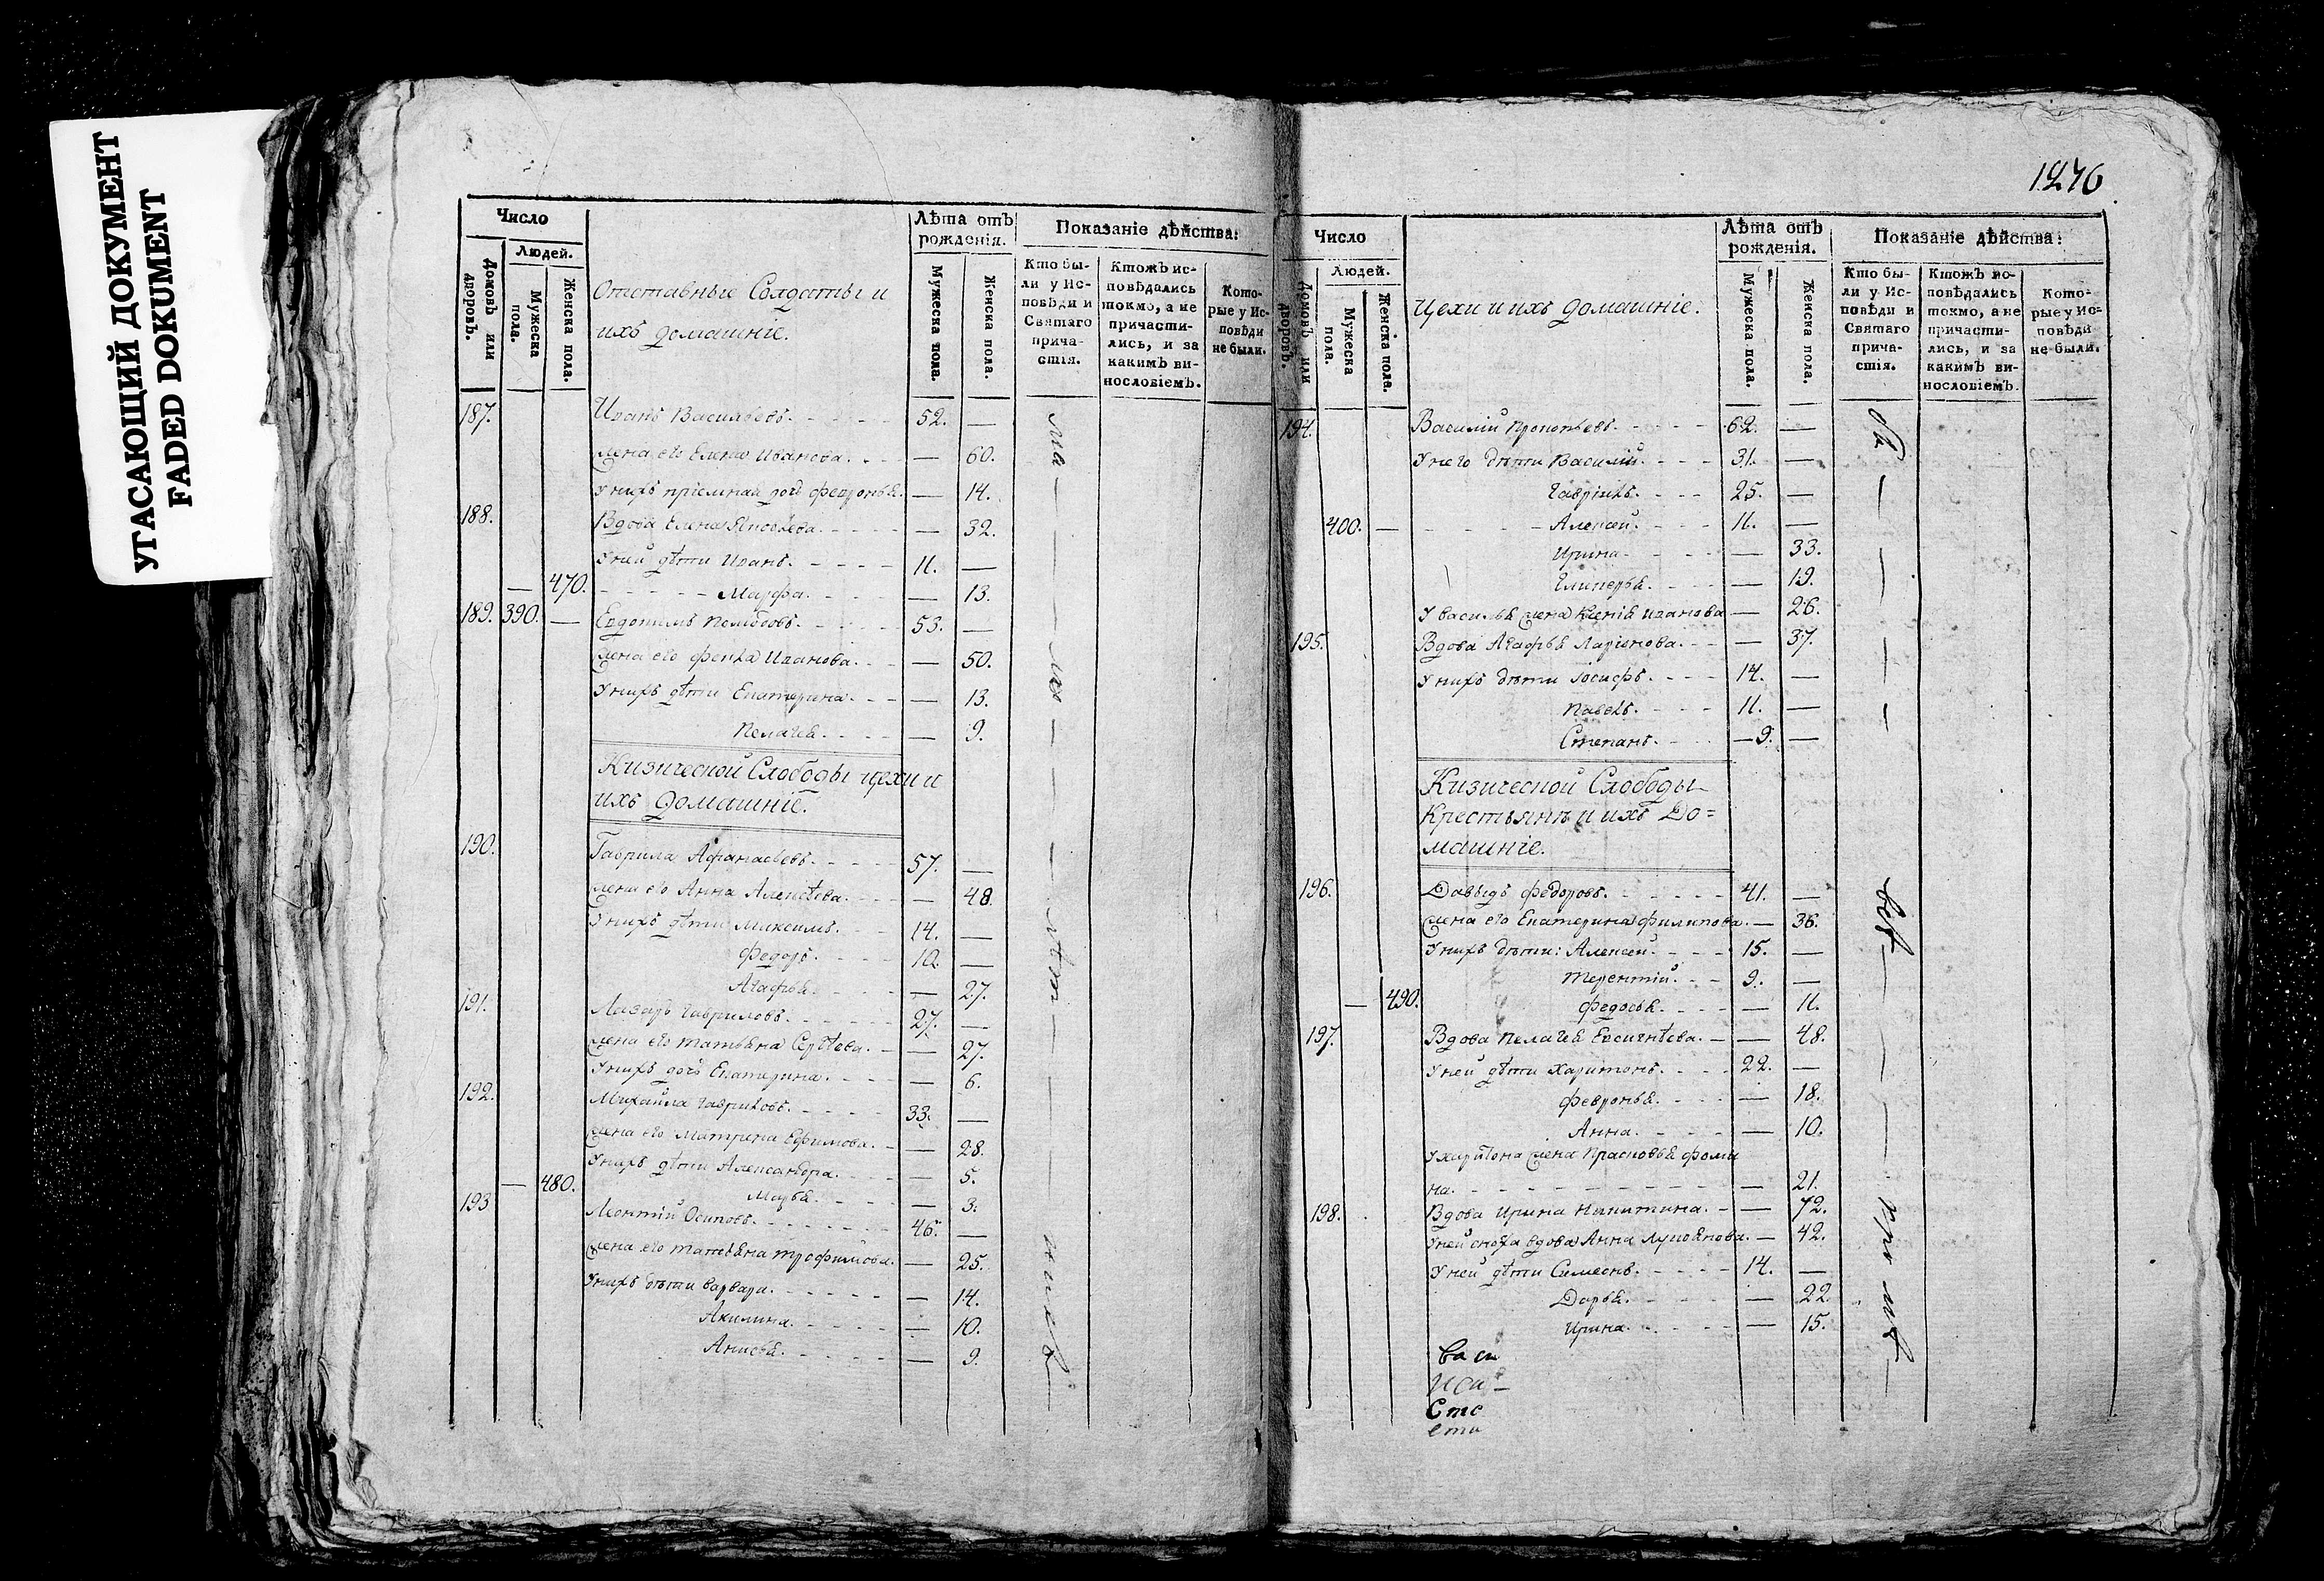 УТАСАЮЩИЙ ДОКУМЕНТ
FADED DOKUMENT
Число
Людей.
Домовъ или дворовъ.
Мужеска пола.
Женска пола.
Отставные Солдаты и
ихъ домашніе.
Лѣта отъ рожденія.
Мужеска пола.
Женска пола.
Показаніе дѣйства:
Кто были у Исповѣди и Святаго причастія.
Ктожъ исповѣдались токмо, а не причастились, и за какимъ винословіемъ.
Которые у Исповѣди не были.
187. Иванъ Васильевъ. 52. —
жена его Елена Иванова. — 60.
У нихъ пріемная дочь Февронья. — 14.
188. Вдова Елена Яковлева. — 32.
У ней дѣти Иванъ. 11. —
— 470. Марфа. — 13.
189. 390. — Евдокимъ 53. —
жена его Фекла Иванова. — 50.
У нихъ дѣти Екатерина. — 13.
Пелагея. — 9.
Кизической Слободы цехи и
ихъ домашніе.
190. Гаврила Афанасьевъ. 57. —
жена его Анна Алексѣева. — 48.
У нихъ дѣти Максимъ. 14. —
Федоръ. 10. —
Агафья. — 27.
191. Лазарь Гавриловъ. 27. —
жена его Татьяна Сергѣева. — 27.
У нихъ дочь Екатерина. — 6.
192. Михайла Гавриловъ. 33. —
жена его Матрена Ефимова. — 28.
У нихъ дѣти Александра. — 5.
— 480. Марья. — 3.
193 Леонтій Осиповъ. 46. —
жена его Татьяна Трофимова. — 25.
У нихъ дѣти Варвара. — 14.
Акилина. — 10.
Анисья. — 9.
1276
Число
Людей.
Домовъ или дворовъ.
Мужеска пола.
Женска пола.
Цехи и ихъ домашніе.
Лѣта отъ рожденія.
Мужеска пола.
Женска пола.
Показаніе дѣйства:
Кто были у Исповѣди и Святаго причастія.
Ктожъ исповѣдались токмо, а не причастились, и за какимъ винословіемъ.
Которые у Исповѣди не были.
194. Василій Прокопьевъ. 62. —
У него дѣти Василій. 31. —
Гаврилъ. 25. —
400. — Алексей. 11. —
Ирина. — 33.
Гликерья. — 19.
У Василья жена Ксенія Иванова — 26.
195. Вдова Агафья Ларіонова. — 37.
У нихъ дѣти Іосифъ. 14. —
Павелъ. 11. —
Степанъ. — 9. —
Кизической Слободы
Крестьянѣ и ихъ До=
машніе.
196. Давыдъ Федоровъ. 41. —
жена его Екатерина Филипова. — 36.
У нихъ дѣти: Алексей. 15. —
Терентій. 9. —
— 490. Федосья. — 11.
197. Вдова Пелагея Евсигнѣева. — 48.
У ней дѣти Харитонъ. 22. —
Февронья. — 18.
Анна. — 10.
У Харитона жена Прасковья Фоми
на. — 21.
198. Вдова Ирина Никитина. — 72.
У ней сноха вдова Анна Лукоянова. — 42.
У ней дѣти Симеонъ. 14. —
Дарья. — 22.
Ирина. — 15.